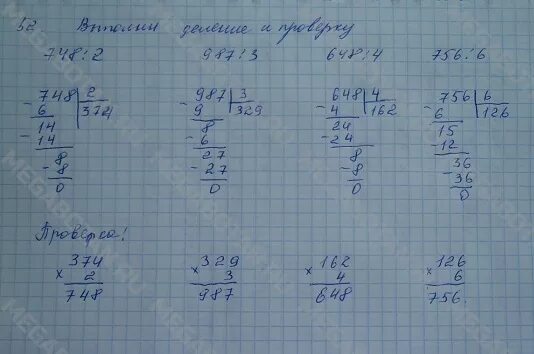 52. Выполни деление и проверку
748:2 987:3 648:4 756:6
748 2 987 3 648 4 756 6
6 374 9 329 4 162 6 126
14 8 24 15
14 6 24 12
8 27 8 36
8 27 8 36
0 0 0 0
Проверка!
374 329 162 126
× 2 × 3 × 4 × 6
748 987 648 756.